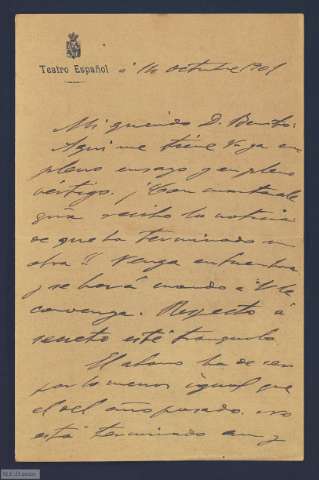 Teatro Español
á 14 octubre 901
Mi querido D. Benito:
Aquí me tiene V. ya en
pleno ensayo y en pleno
vértigo. ¡Con
recibo la noticia
de que ha terminado su
obra!! Venga en
y se hará cuando á V. le
convenga. Respecto á
secreto esté tranquilo
El abono ha de ser
por lo menos igual que
el del año pasado. no
está terminado aun y